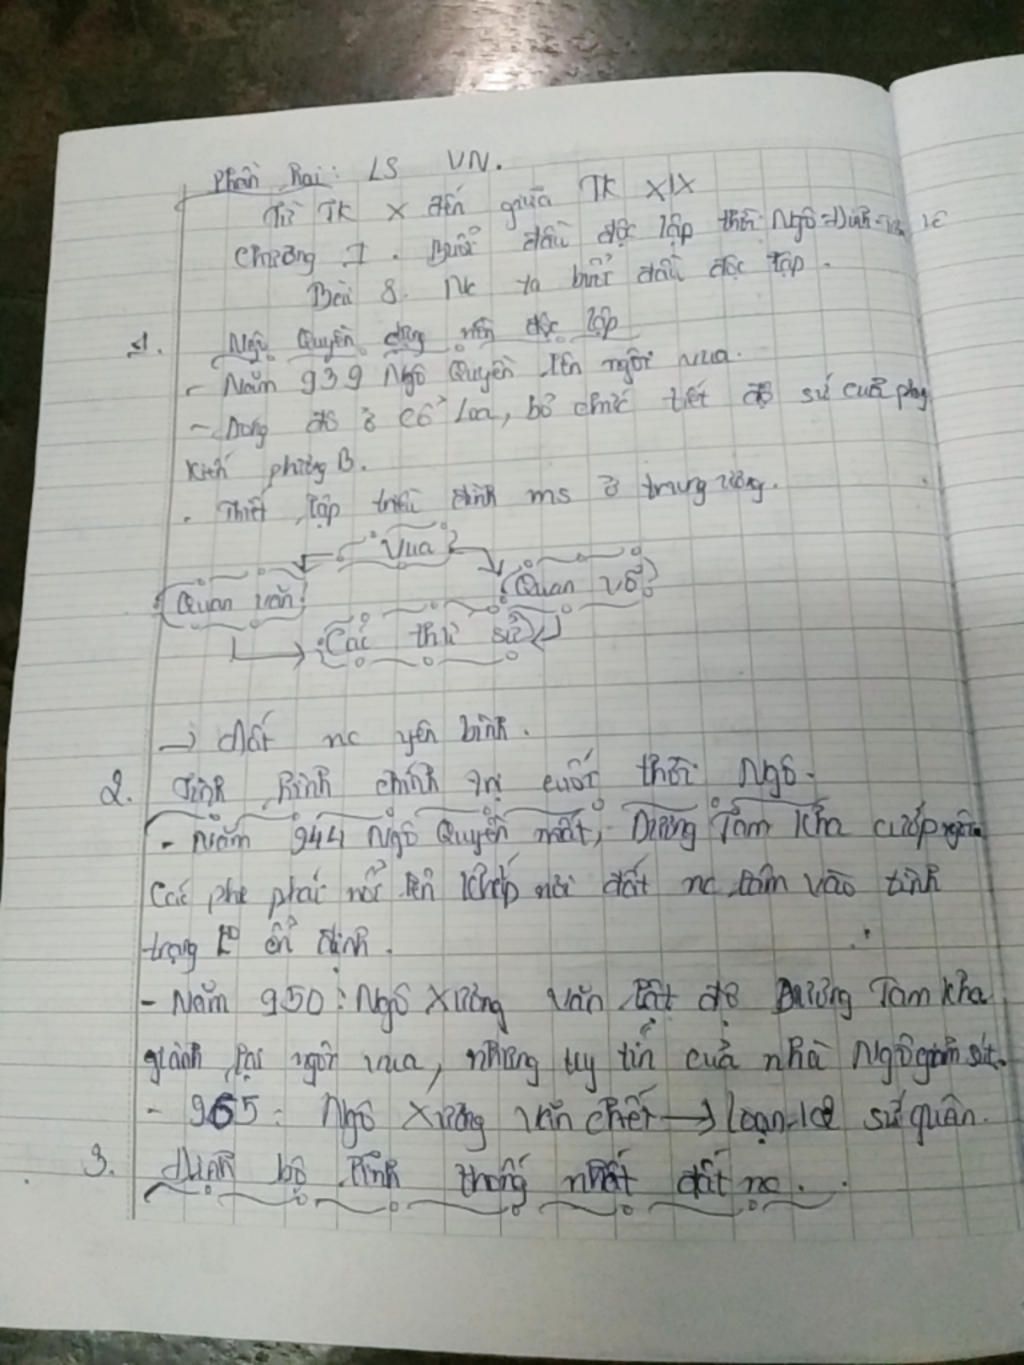 Phần hai: LS VN.
Từ TK X đến giữa TK XIX
Chương I. Buổi đầu độc lập thời Ngô-Đinh-Tiền Lê
Bài 8. Nc ta buổi đầu độc lập.
1. Ngô Quyền dựng nền độc lập
- Năm 939 Ngô Quyền lên ngôi vua.
- Đóng đô ở Cổ Loa, bỏ chức tiết độ sứ của phog
kiến phương B.
- Thiết lập triều đình ms ở trung ương.
Vua
Quan văn Quan võ
Các thứ sử
→ đất nc yên bình.
2. Tình hình chính trị cuối thời Ngô.
- Năm 944 Ngô Quyền mất, Dương Tam Kha cướp ngôi
Các phe phái nổi lên khắp nơi đất nc lâm vào tình
trạng ko ổn định.
- Năm 950: Ngô Xương Văn lật đổ Dương Tam Kha
giành lại ngôi vua, nhưng uy tín của nhà Ngô giảm sút.
- 965: Ngô Xương Văn chết → loạn 12 sứ quân.
3. Đinh bộ lĩnh thống nhất đất nc.